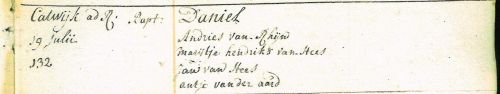 Catwijk ad R. Bapt: Daniel
19 Julii Andries van Rhijn
132 maertje hendriks van Hees
Jan van Hees
antje vander aard